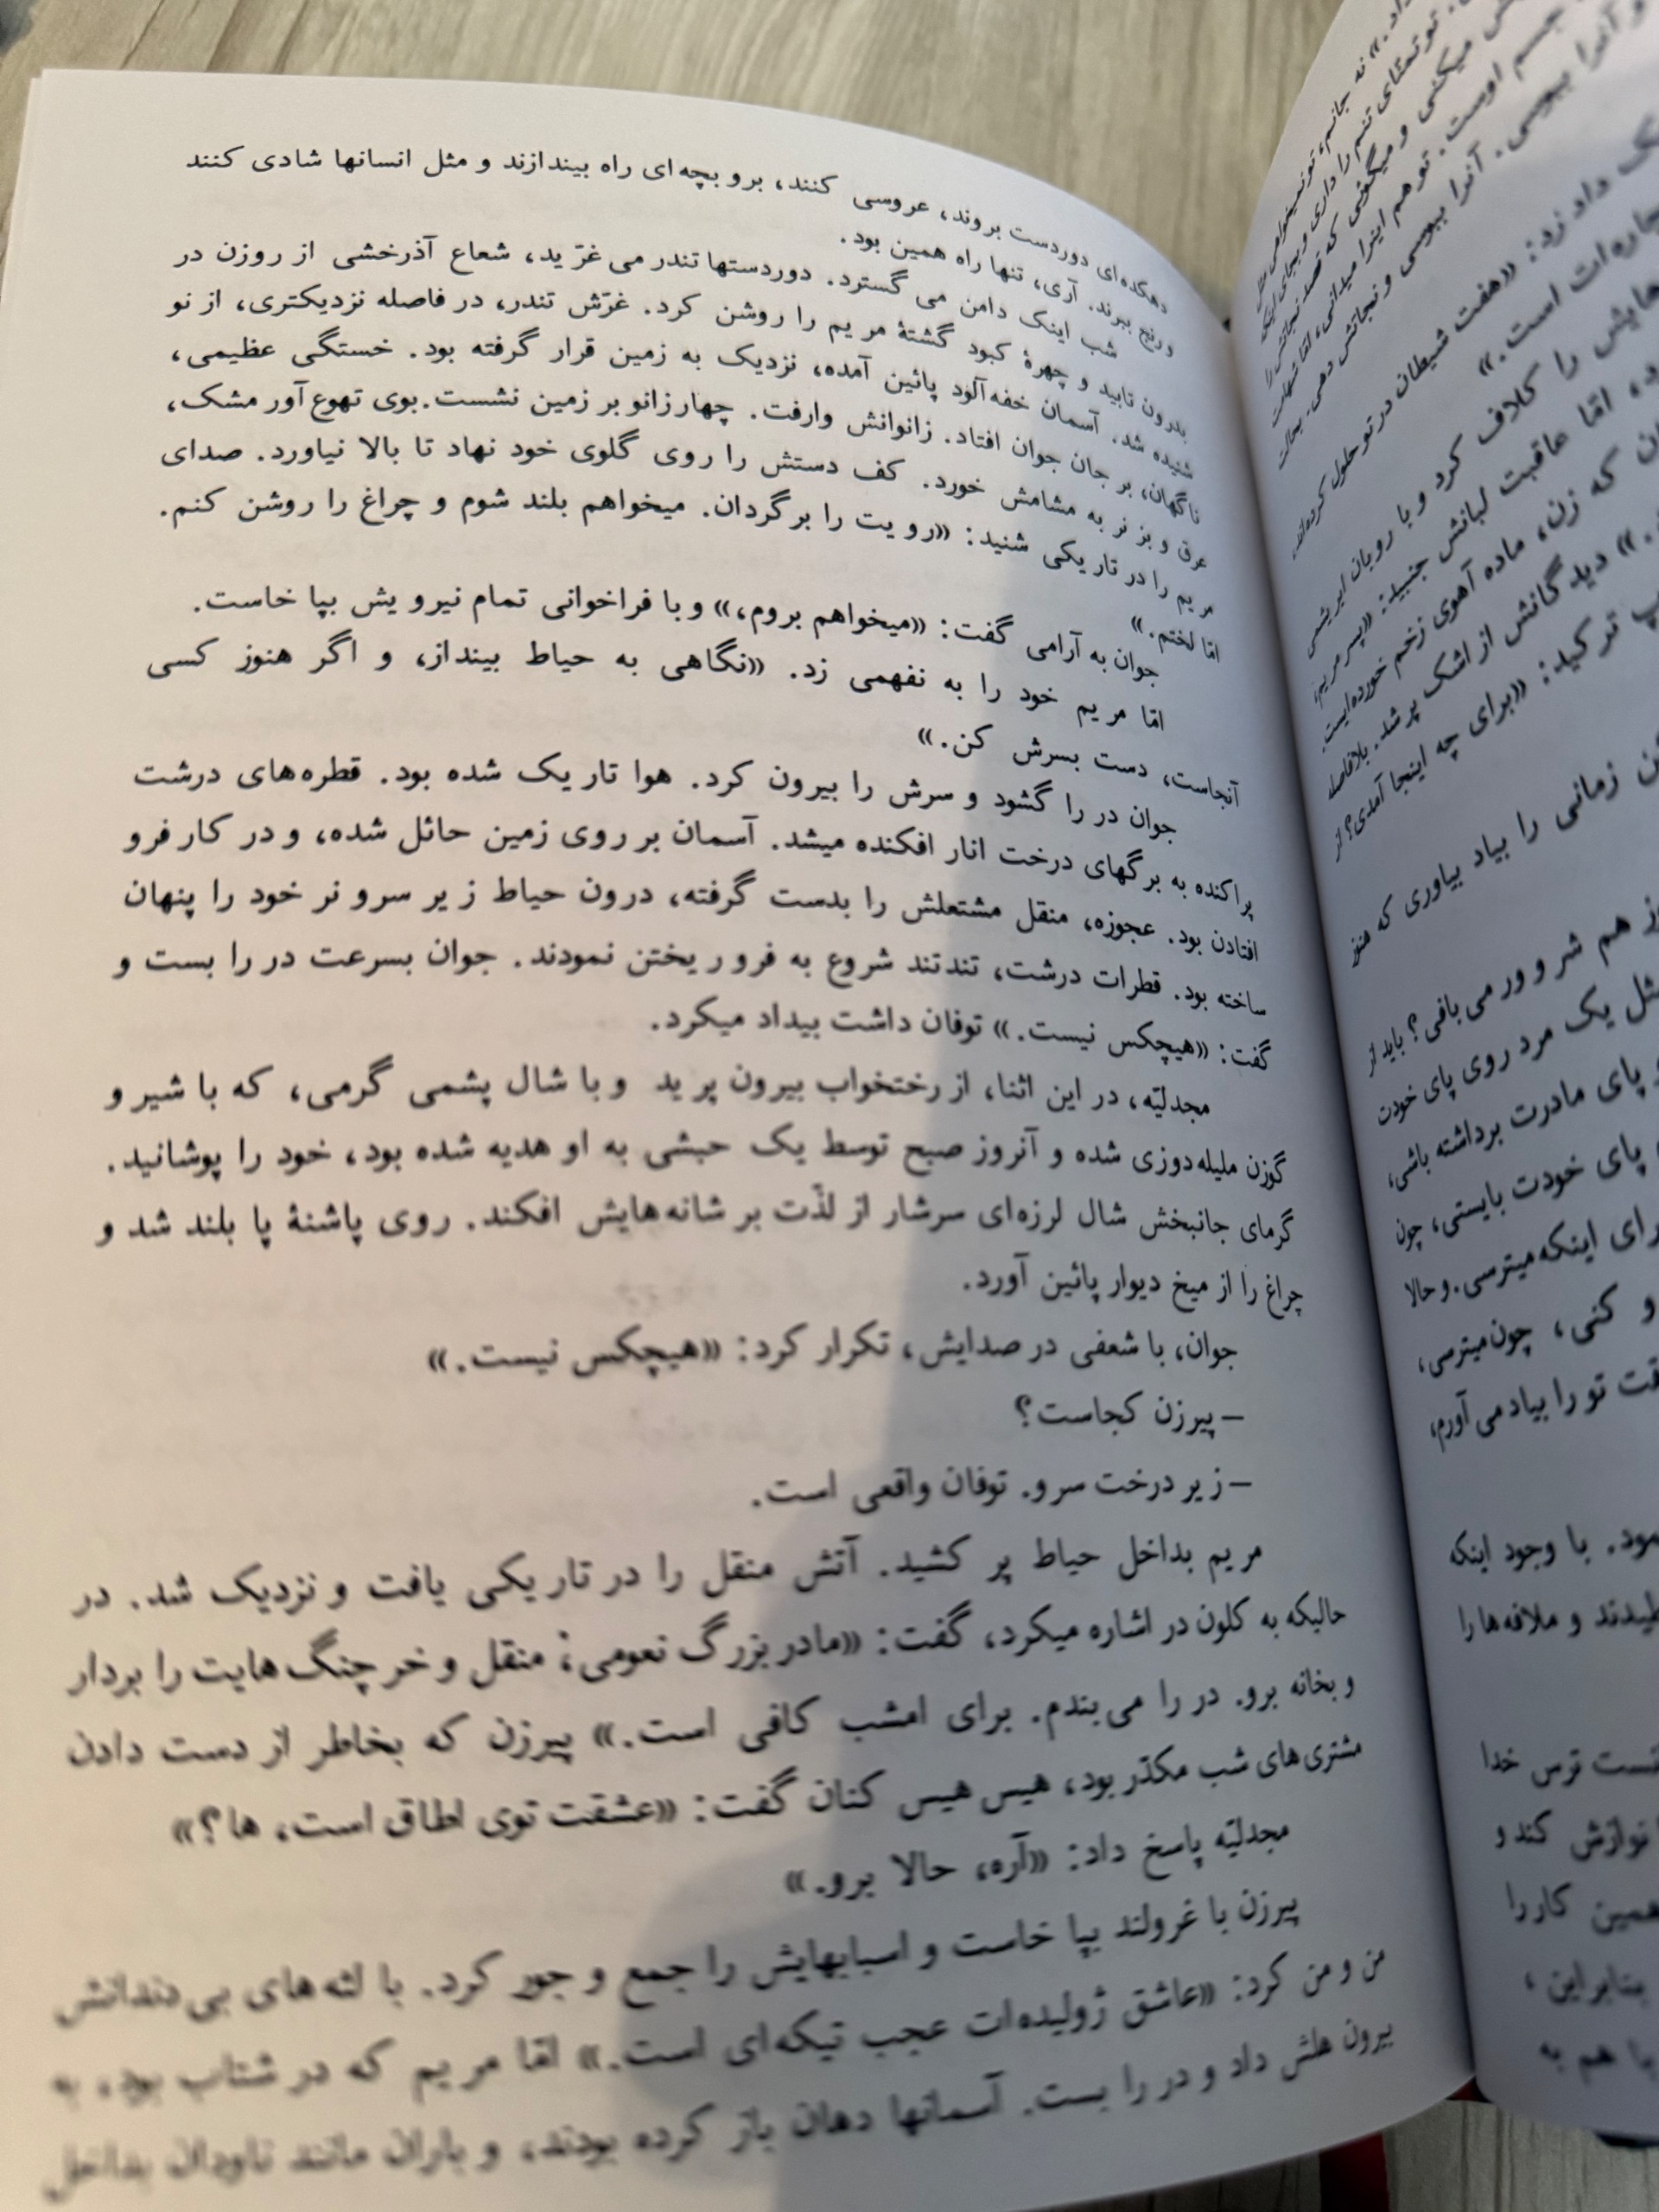 دهکده‌ای دوردست بروند، عروسی کنند، برو بچه‌ای راه بیندازند و مثل انسانها شادی کنند
ورنج ببرند. آری، تنها راه همین بود.
شب اینک دامن می گسترد. دوردستها تندر می غرّید، شعاع آذرخشی از روزن در
بدرون تابید و چهرهٔ کبود گشتهٔ مریم را روشن کرد. غرّش تندر، در فاصله نزدیکتری، از نو
شنیده شد. آسمان خفه‌آلود پائین آمده، نزدیک به زمین قرار گرفته بود. خستگی عظیمی،
ناگهان، بر جان جوان افتاد. زانوانش وارفت. چهارزانو بر زمین نشست. بوی تهوع‌آور مشک،
عرق و بز نر به مشامش خورد. کف دستش را روی گلوی خود نهاد تا بالا نیاورد. صدای
مریم را در تاریکی شنید: «رویت را برگردان. میخواهم بلند شوم و چراغ را روشن کنم.
امّا لختم.»
جوان به آرامی گفت: «میخواهم بروم،» و با فراخوانی تمام نیرویش بپا خاست.
امّا مریم خود را به نفهمی زد. «نگاهی به حیاط بینداز، و اگر هنوز کسی
آنجاست، دست بسرش کن.»
جوان در را گشود و سرش را بیرون کرد. هوا تاریک شده بود. قطره‌های درشت
پراکنده به برگهای درخت انار افکنده میشد. آسمان بر روی زمین حائل شده، و در کار فرو
افتادن بود. عجوزه، منقل مشتعلش را بدست گرفته، درون حیاط زیر سرو نر خود را پنهان
ساخته بود. قطرات درشت، تندتند شروع به فرو ریختن نمودند. جوان بسرعت در را بست و
گفت: «هیچکس نیست.» توفان داشت بیداد میکرد.
مجدلیّه، در این اثنا، از رختخواب بیرون پرید و با شال پشمی گرمی، که با شیر و
گوزن ملیله‌دوزی شده و آنروز صبح توسط یک حبشی به او هدیه شده بود، خود را پوشانید.
گرمای جانبخش شال لرزه‌ای سرشار از لذّت بر شانه‌هایش افکند. روی پاشنهٔ پا بلند شد و
چراغ را از میخ دیوار پائین آورد.
جوان، با شعفی در صدایش، تکرار کرد: «هیچکس نیست.»
– پیرزن کجاست؟
– زیر درخت سرو. توفان واقعی است.
مریم بداخل حیاط پر کشید. آتش منقل را در تاریکی یافت و نزدیک شد. در
حالیکه به کلون در اشاره میکرد، گفت: «مادربزرگ نعومی؛ منقل و خرچنگ‌هایت را بردار
و بخانه برو. در را می‌بندم. برای امشب کافی است.» پیرزن که بخاطر از دست دادن
مشتری‌های شب مکدّر بود، هیس هیس کنان گفت: «عشقت توی اطاق است، ها؟»
مجدلیّه پاسخ داد: «آره، حالا برو.»
پیرزن با غرولند بپا خاست و اسبابهایش را جمع و جور کرد. با لثه‌های بی‌دندانش
من و من کرد: «عاشق ژولیده‌ات عجب تیکه‌ای است.» امّا مریم که در شتاب بود، به
بیرون هلش داد و در را بست. آسمانها دهان باز کرده بودند، و باران مانند ناودان بداخل
داد.» نه جانم، تو نمیخواهی
تو تمنّای تنم را داری و بجای اینکه
میکنی و میگوئی که قصد نجاتش را
جسم اوست. تو هم اینرا میدانی، امّا شهامت
و آنرا ببوسی. آنرا ببوسی و نجاتش دهی.
داد زد: «هفت شیطان در تو حلول کرده‌اند.
است.»
را کلاف کرد و با روبان ابریشمی
امّا عاقبت لبانش جنبید: «پسر مریم،
که زن، ماده آهوی زخم خورده‌ایست.
دیدگانش از اشک پر شد. بلافاصله
ترکید: «برای چه اینجا آمدی؟ از
زمانی را بیاد بیاوری که هنوز
هم شر و ور می بافی؟ باید از
مثل یک مرد روی پای خودت
پای مادرت برداشته باشی،
پای خودت بایستی، چون
برای اینکه میترسی. و حالا
و کنی، چون میترسی،
تو را بیاد می آورم،
با وجود اینکه
و ملافه‌ها را
ترس خدا
نوازش کند و
همین کار را
بنابراین،
هم به